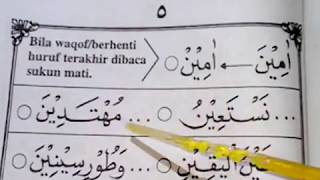 ٥
Bila waqof/berhenti
huruf terakhir dibaca
sukun mati.
اٰمِيْنَ ← اٰمِيْنْ
... نَسْتَعِيْنُ ... مُهْتَدِيْنَ
عَيْنَ الْيَقِيْنِ ... وَطُورِ سِيْنِيْنَ